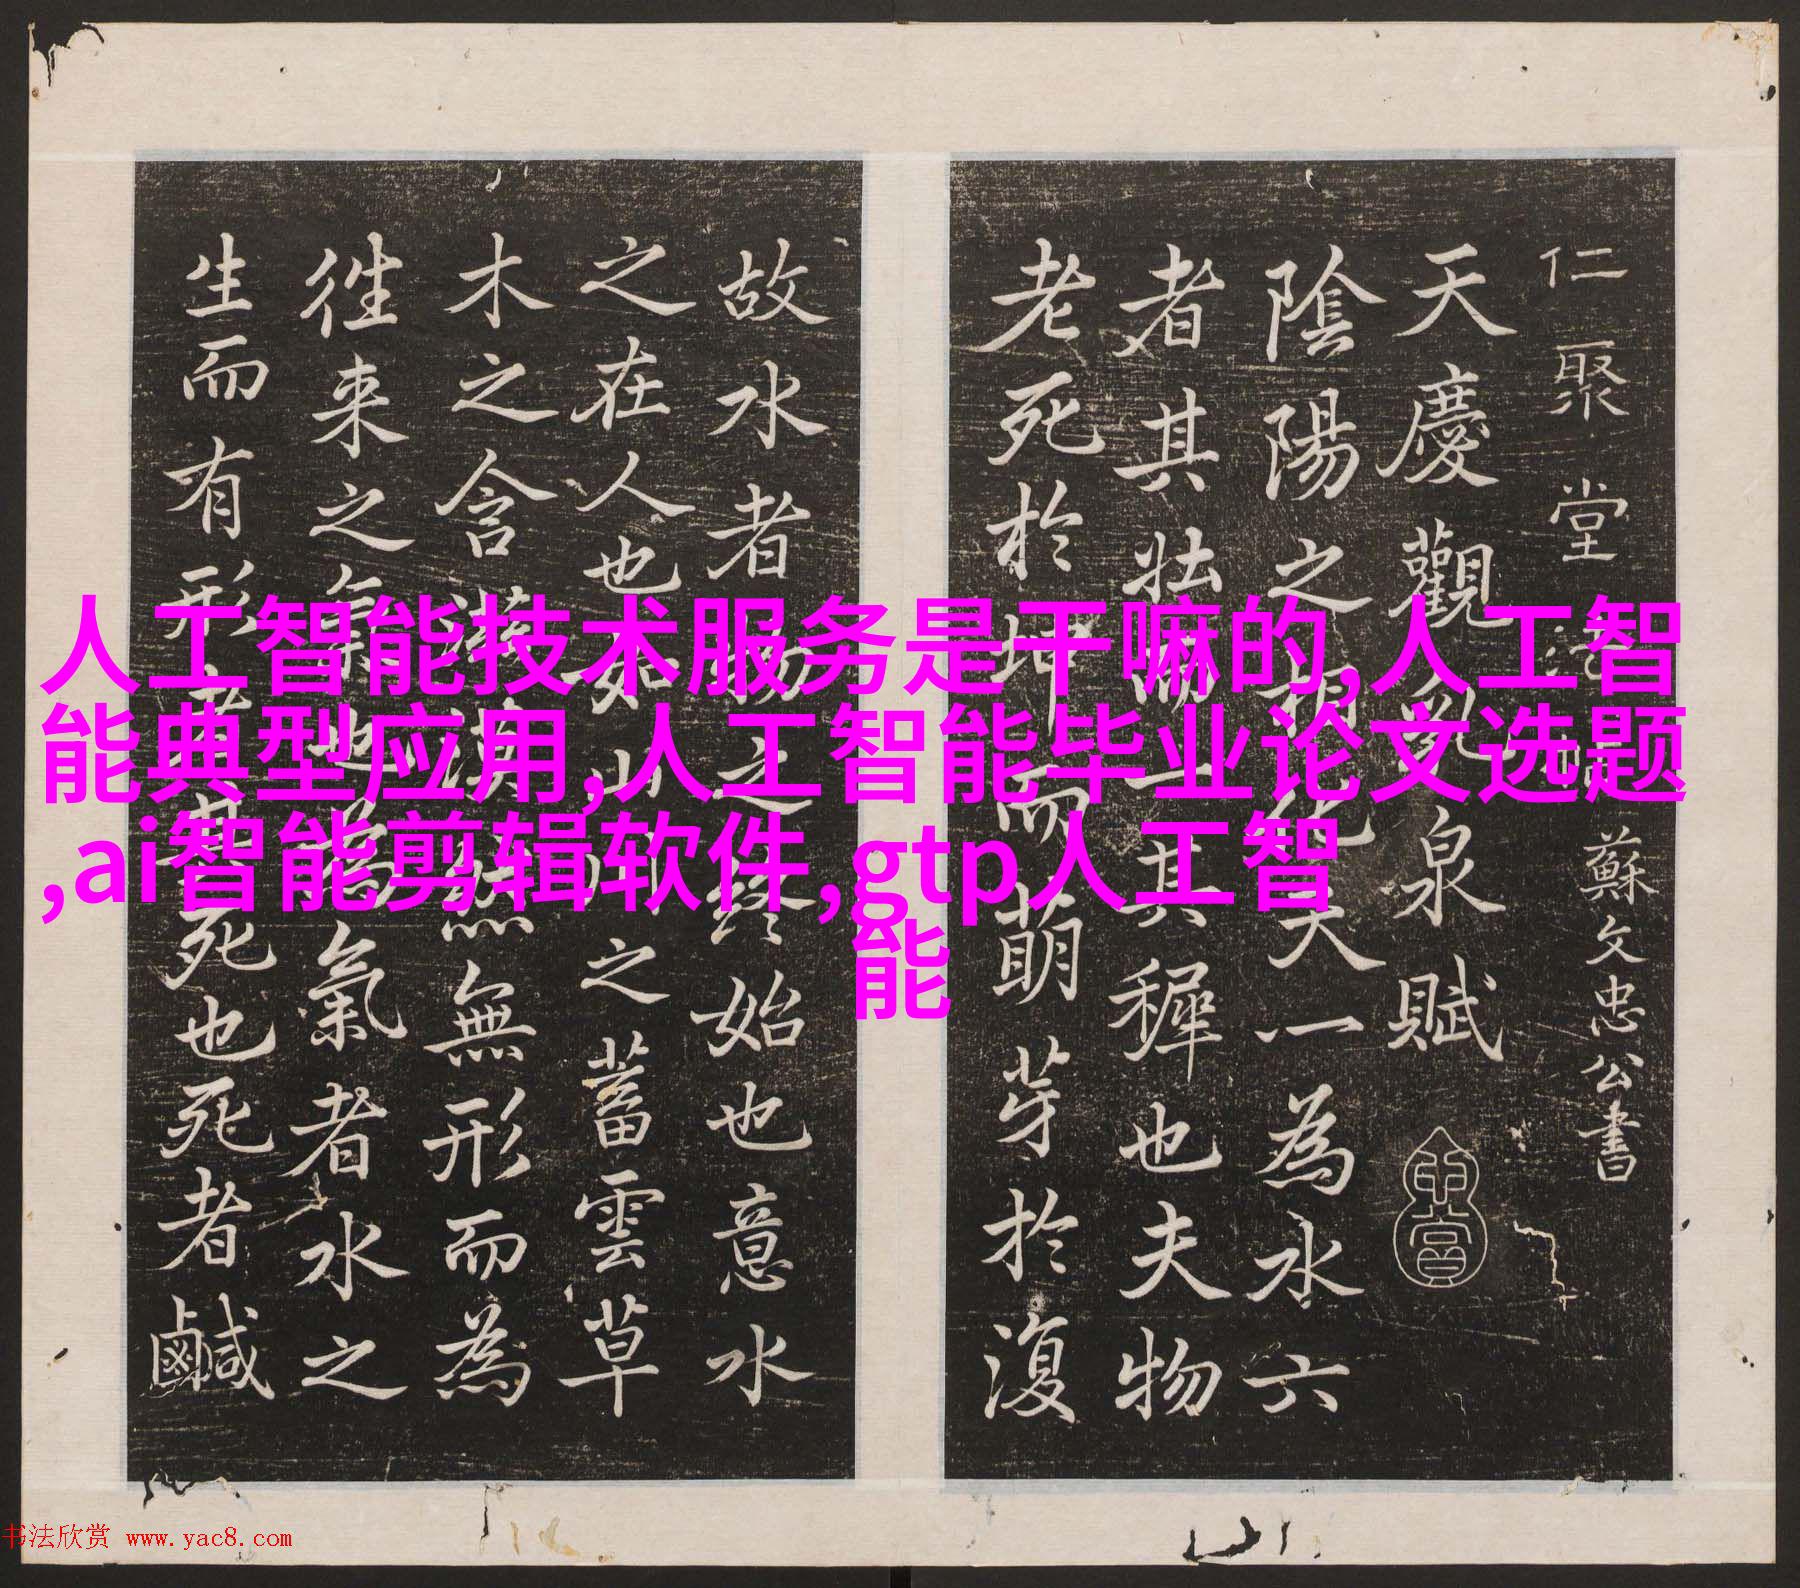 仁聚堂法帖 蘇文忠公書
天慶觀乳泉賦
陰陽之相化天一為水六
者其壯而一者其穉也夫物
老死於坤而萌芽於復
故水者物之終始也意水
之在人也如山川之蓄雲草
木之含滋漠然無形而為
徃来之氣也為氣者水之
生而有形者其死也死者鹹
人工智能技术服务是干嘛的,人工智
能典型应用,人工智能毕业论文选题
,ai智能剪辑软件,gtp人工智
能
书法欣赏 www.yac8.com